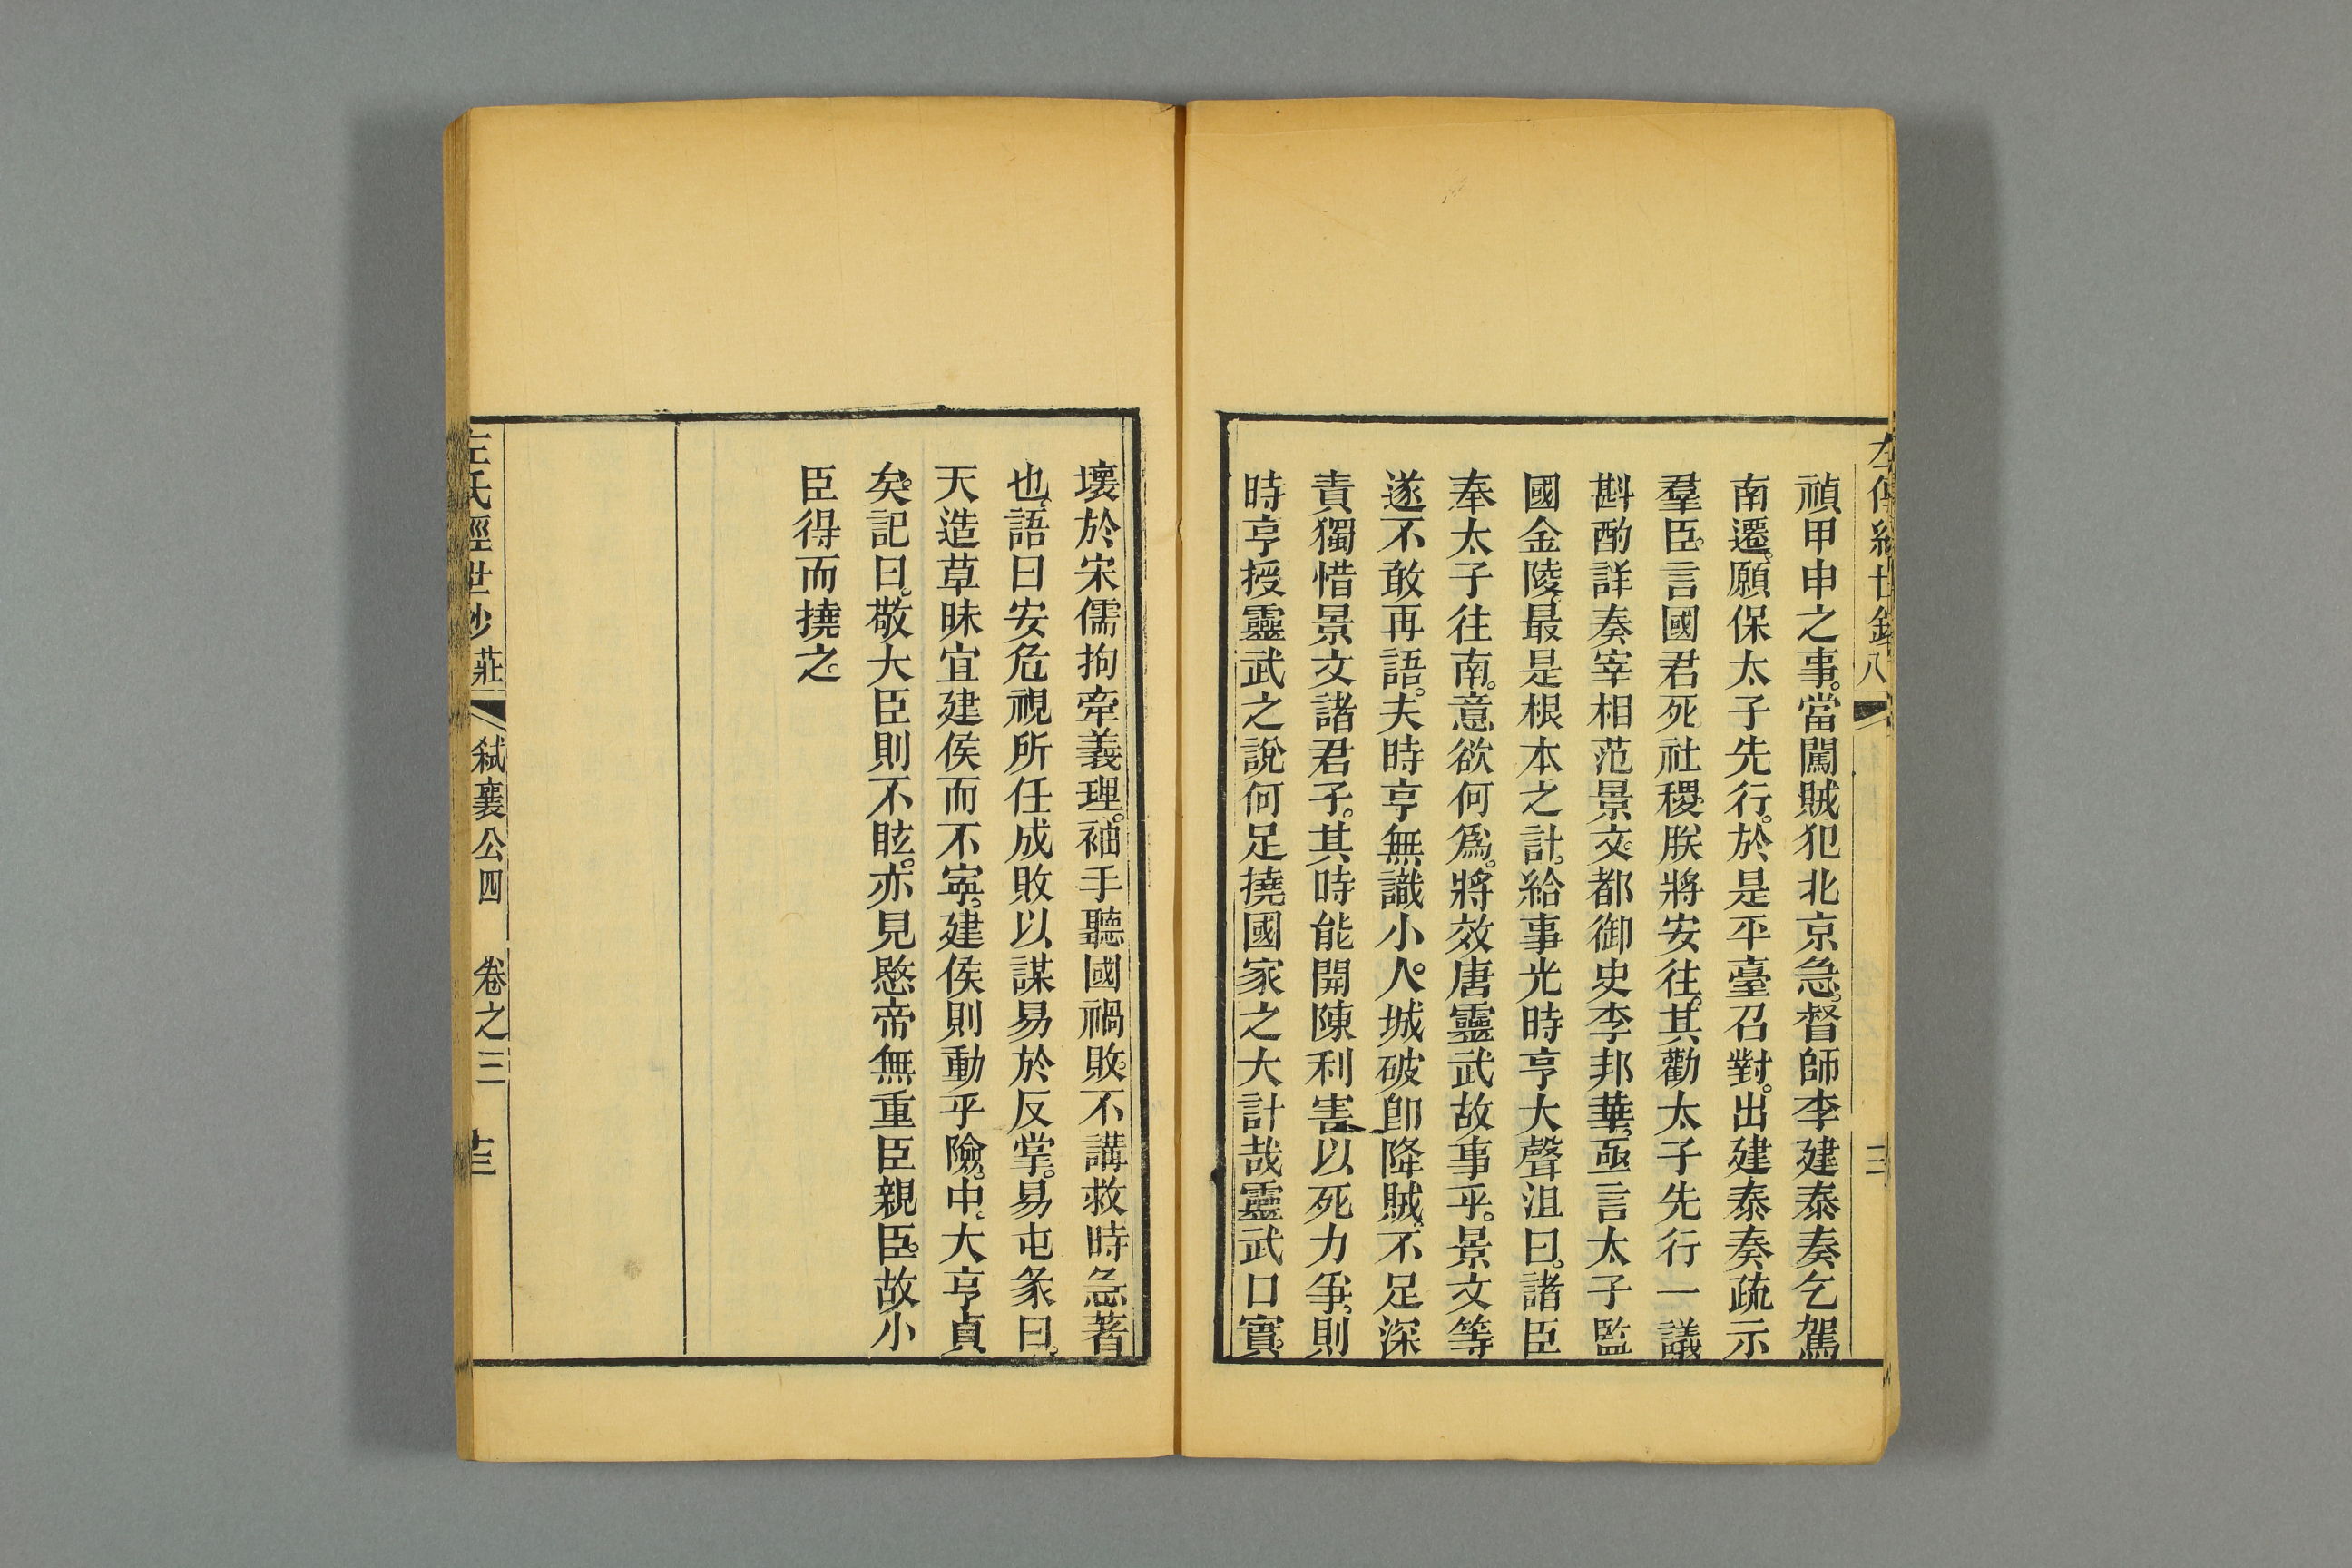 禎甲申之事。當闖賊犯北京急。督師李建泰奏乞駕
南遷。願保太子先行。於是平臺召對。出建泰奏疏示
羣臣。言國君死社稷。朕將安往。其勸太子先行一議
斟酌詳奏宰相范景文。都御史李邦華。亟言太子監
國金陵。最是根本之計。給事光時亨大聲沮曰。諸臣
奉太子往南。意欲何爲。將效唐靈武故事乎。景文等
遂不敢再語。夫時亨無識小人。城破卽降賊。不足深
責獨惜景文諸君子。其時能開陳利害以死力爭。則
時亨授靈武之說何足撓國家之大計哉靈武口實。
壞於宋儒拘牽義理。袖手聽國禍敗。不講救時急著
也。語曰安危視所任成敗以謀易於反掌。易屯彖曰。
天造草昧宜建侯而不寍。建侯則動乎險。中。大亨貞
矣。記曰。敬大臣則不眩。亦見愍帝無重臣親臣。故小
臣得而撓之。
左氏經世鈔 莊 弑襄公四 卷之三